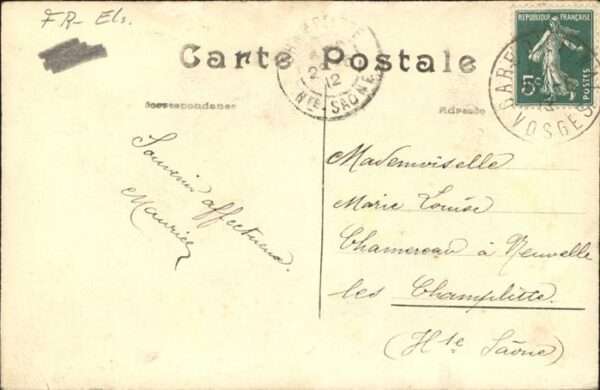 FR- Els.
Carte Postale
Correspondance
Adresse
RÉPUBLIQUE FRANÇAISE
5c
POSTES
GARE
VOSGES
12
HTE-SAÔNE
Souvenir affectueux.
Maurice
Mademoiselle
Marie Louise
Chamereau à Neuvelle
les Champlitte.
(Hte Saône)